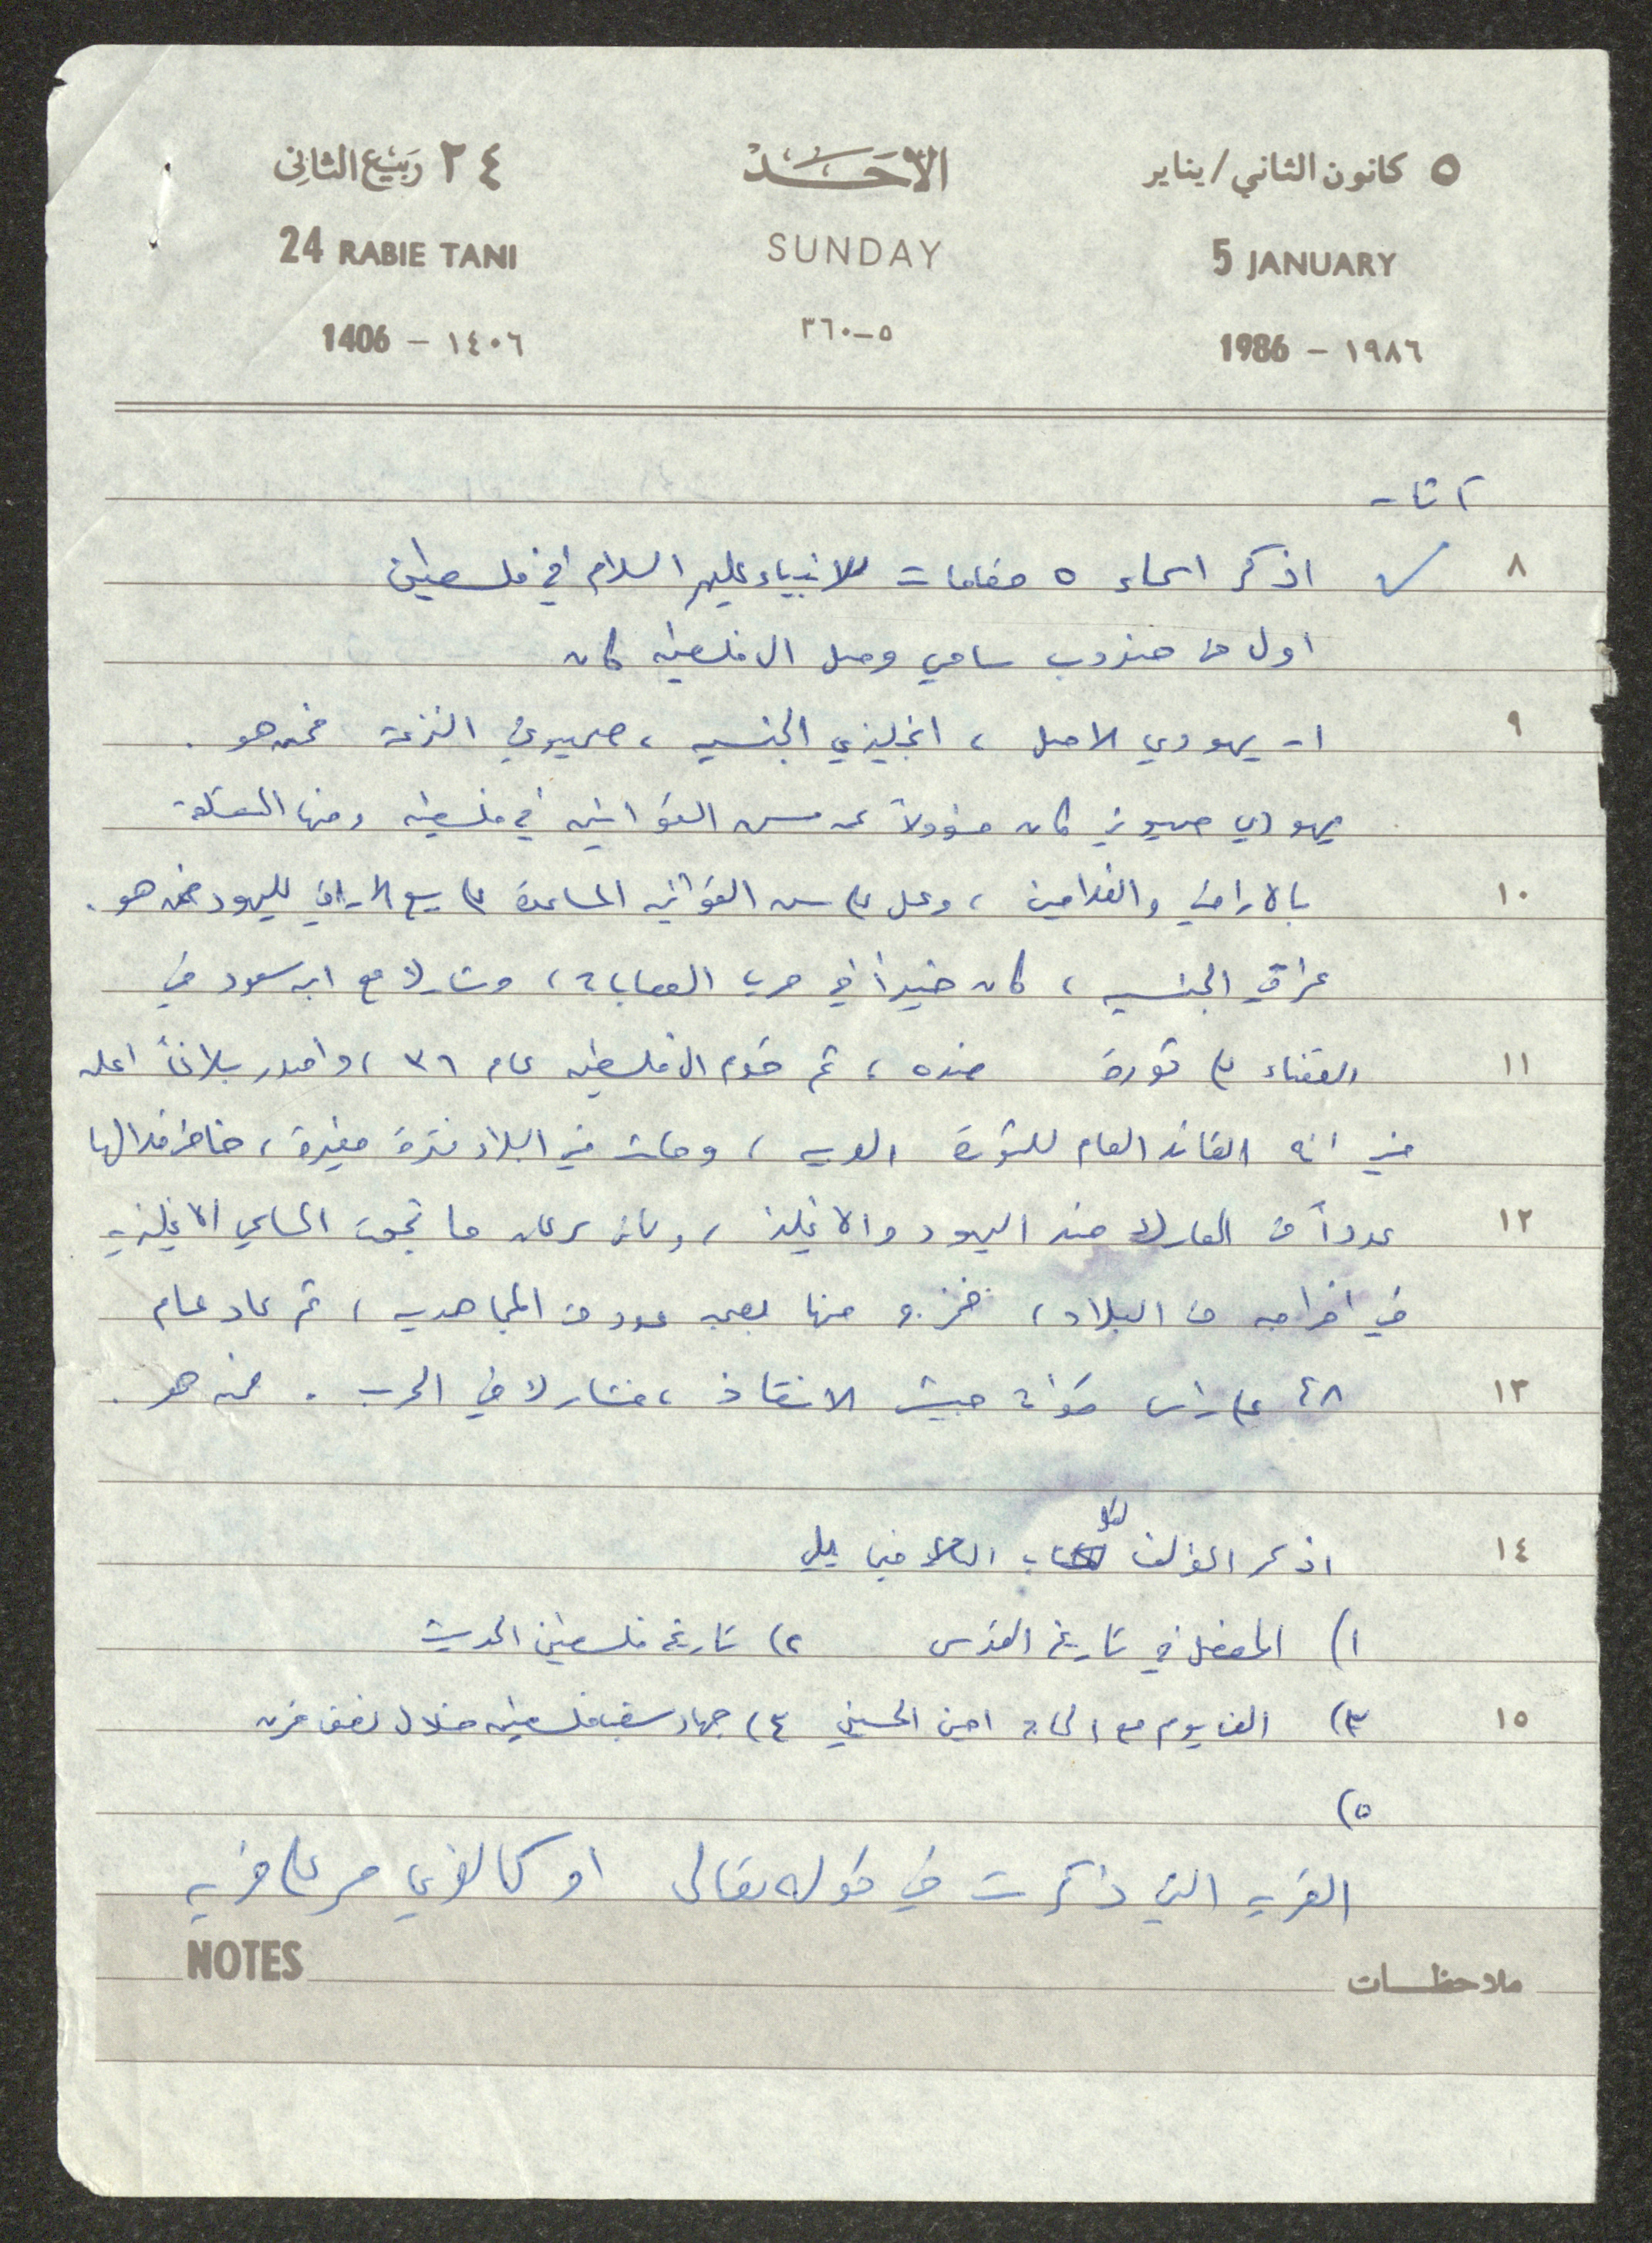 ٥ كانون الثاني/يناير الأحد ٢٤ ربيع الثاني
5 JANUARY SUNDAY 24 RABIE TANI
1986 - ١٩٨٦ ٥-٣٦٠ 1406 - ١٤٠٦
٨ اذكر اسماء ٥ مقامات للانبياء عليهم السلام في فلسطين
اول من مندوب سامي وصل الى فلسطين كان
٩ ١- يهودي الاصل ، انجليزي الجنسيه ، صهيوني النزعة فمن هو .
يهودي صهيوني كان مسؤولاً عن سن القوانين في فلسطين ومنها المتعلقة
١٠ بالاراضي والفلاحين ، وعمل على سن القوانين المساعدة على بيع الاراضي لليهود فمن هو .
عراقي الجنسيه ، كان خبيراً في حرب العصابات ، وشارك مع ابن سعود في
١١ القضاء على ثورة ضده ، ثم قدم الى فلسطين عام ٣٦ ، واصدر بلاغاً اعلن
فيه انه القائد العام للثورة العربيه ، ومكث في البلاد فترة قصيرة ، خاض خلالها
١٢ عدداً من المعارك ضد اليهود والانجليز ، ولكن سرعان ما نجحت المساعي الانجليزيه
في اخراجه من البلاد ، فخرج منها بصحبه عدد من المجاهدين ، ثم عاد عام
١٣ ٤٨ على راس قوات جيش الانقاذ ، فشارك في الحرب . فمن هو .
١٤ اذكر المؤلف لكل كتاب فيما يلي
١) المفصل في تاريخ القدس ٢) تاريخ فلسطين الحديث
١٥ ٣) الف يوم مع الحاج امين الحسيني ٤) جهاد شعب فلسطين خلال نصف قرن
٥)
القريه التي ذكرت في قوله تعالى او كالذي مر على قريه
ملاحظات NOTES